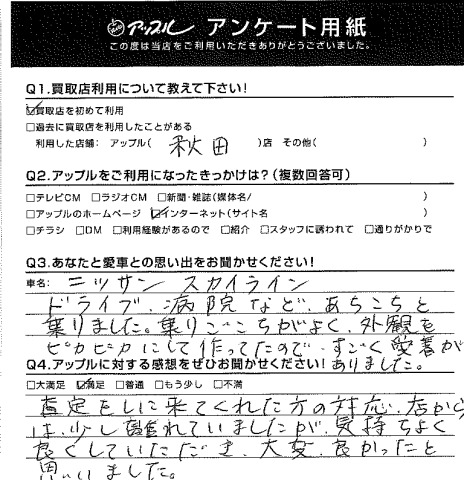 アップル アンケート用紙
この度は当店をご利用いただきありがとうございました。
Q1.買取店利用について教えて下さい!
☑買取店を初めて利用
□過去に買取店を利用したことがある
利用した店舗: アップル( 秋田 )店 その他( )
Q2.アップルをご利用になったきっかけは?(複数回答可)
□テレビCM □ラジオCM □新聞・雑誌(媒体名/ )
□アップルのホームページ ☑インターネット(サイト名 )
□チラシ □DM □利用経験があるので □紹介 □スタッフに誘われて □通りがかりで
Q3.あなたと愛車との思い出をお聞かせください!
車名: ニッサン スカイライン
ドライブ、病院など、あちこちと
乗りました。乗りごこちがよく、外観も
ピカピカにして作ってたので、すごく愛着が
ありました。
Q4.アップルに対する感想をぜひお聞かせください!
□大満足 ☑満足 □普通 □もう少し □不満
査定をしに来てくれた方の対応、店から
は、少し離れていましたが、気持ちよく
良くしていただき、大変、良かったと
思いました。